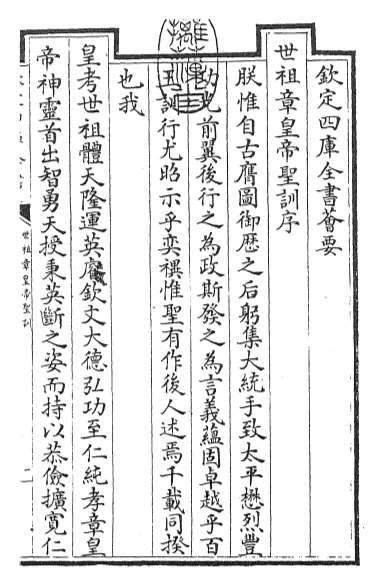 欽定四庫全書薈要
世祖章皇帝聖訓序
朕惟自古膺圖御歷之后躬集大統手致太平懋烈豐
功光前翼後行之為政斯發之為言義蘊固卓越乎百
王訓行尤昭示乎奕禩惟聖有作後人述焉千載同揆
也我
皇考世祖體天隆運英睿欽文大德弘功至仁純孝章皇
帝神靈首出智勇天授秉英斷之姿而持以恭儉擴寬仁
世祖章皇帝聖訓